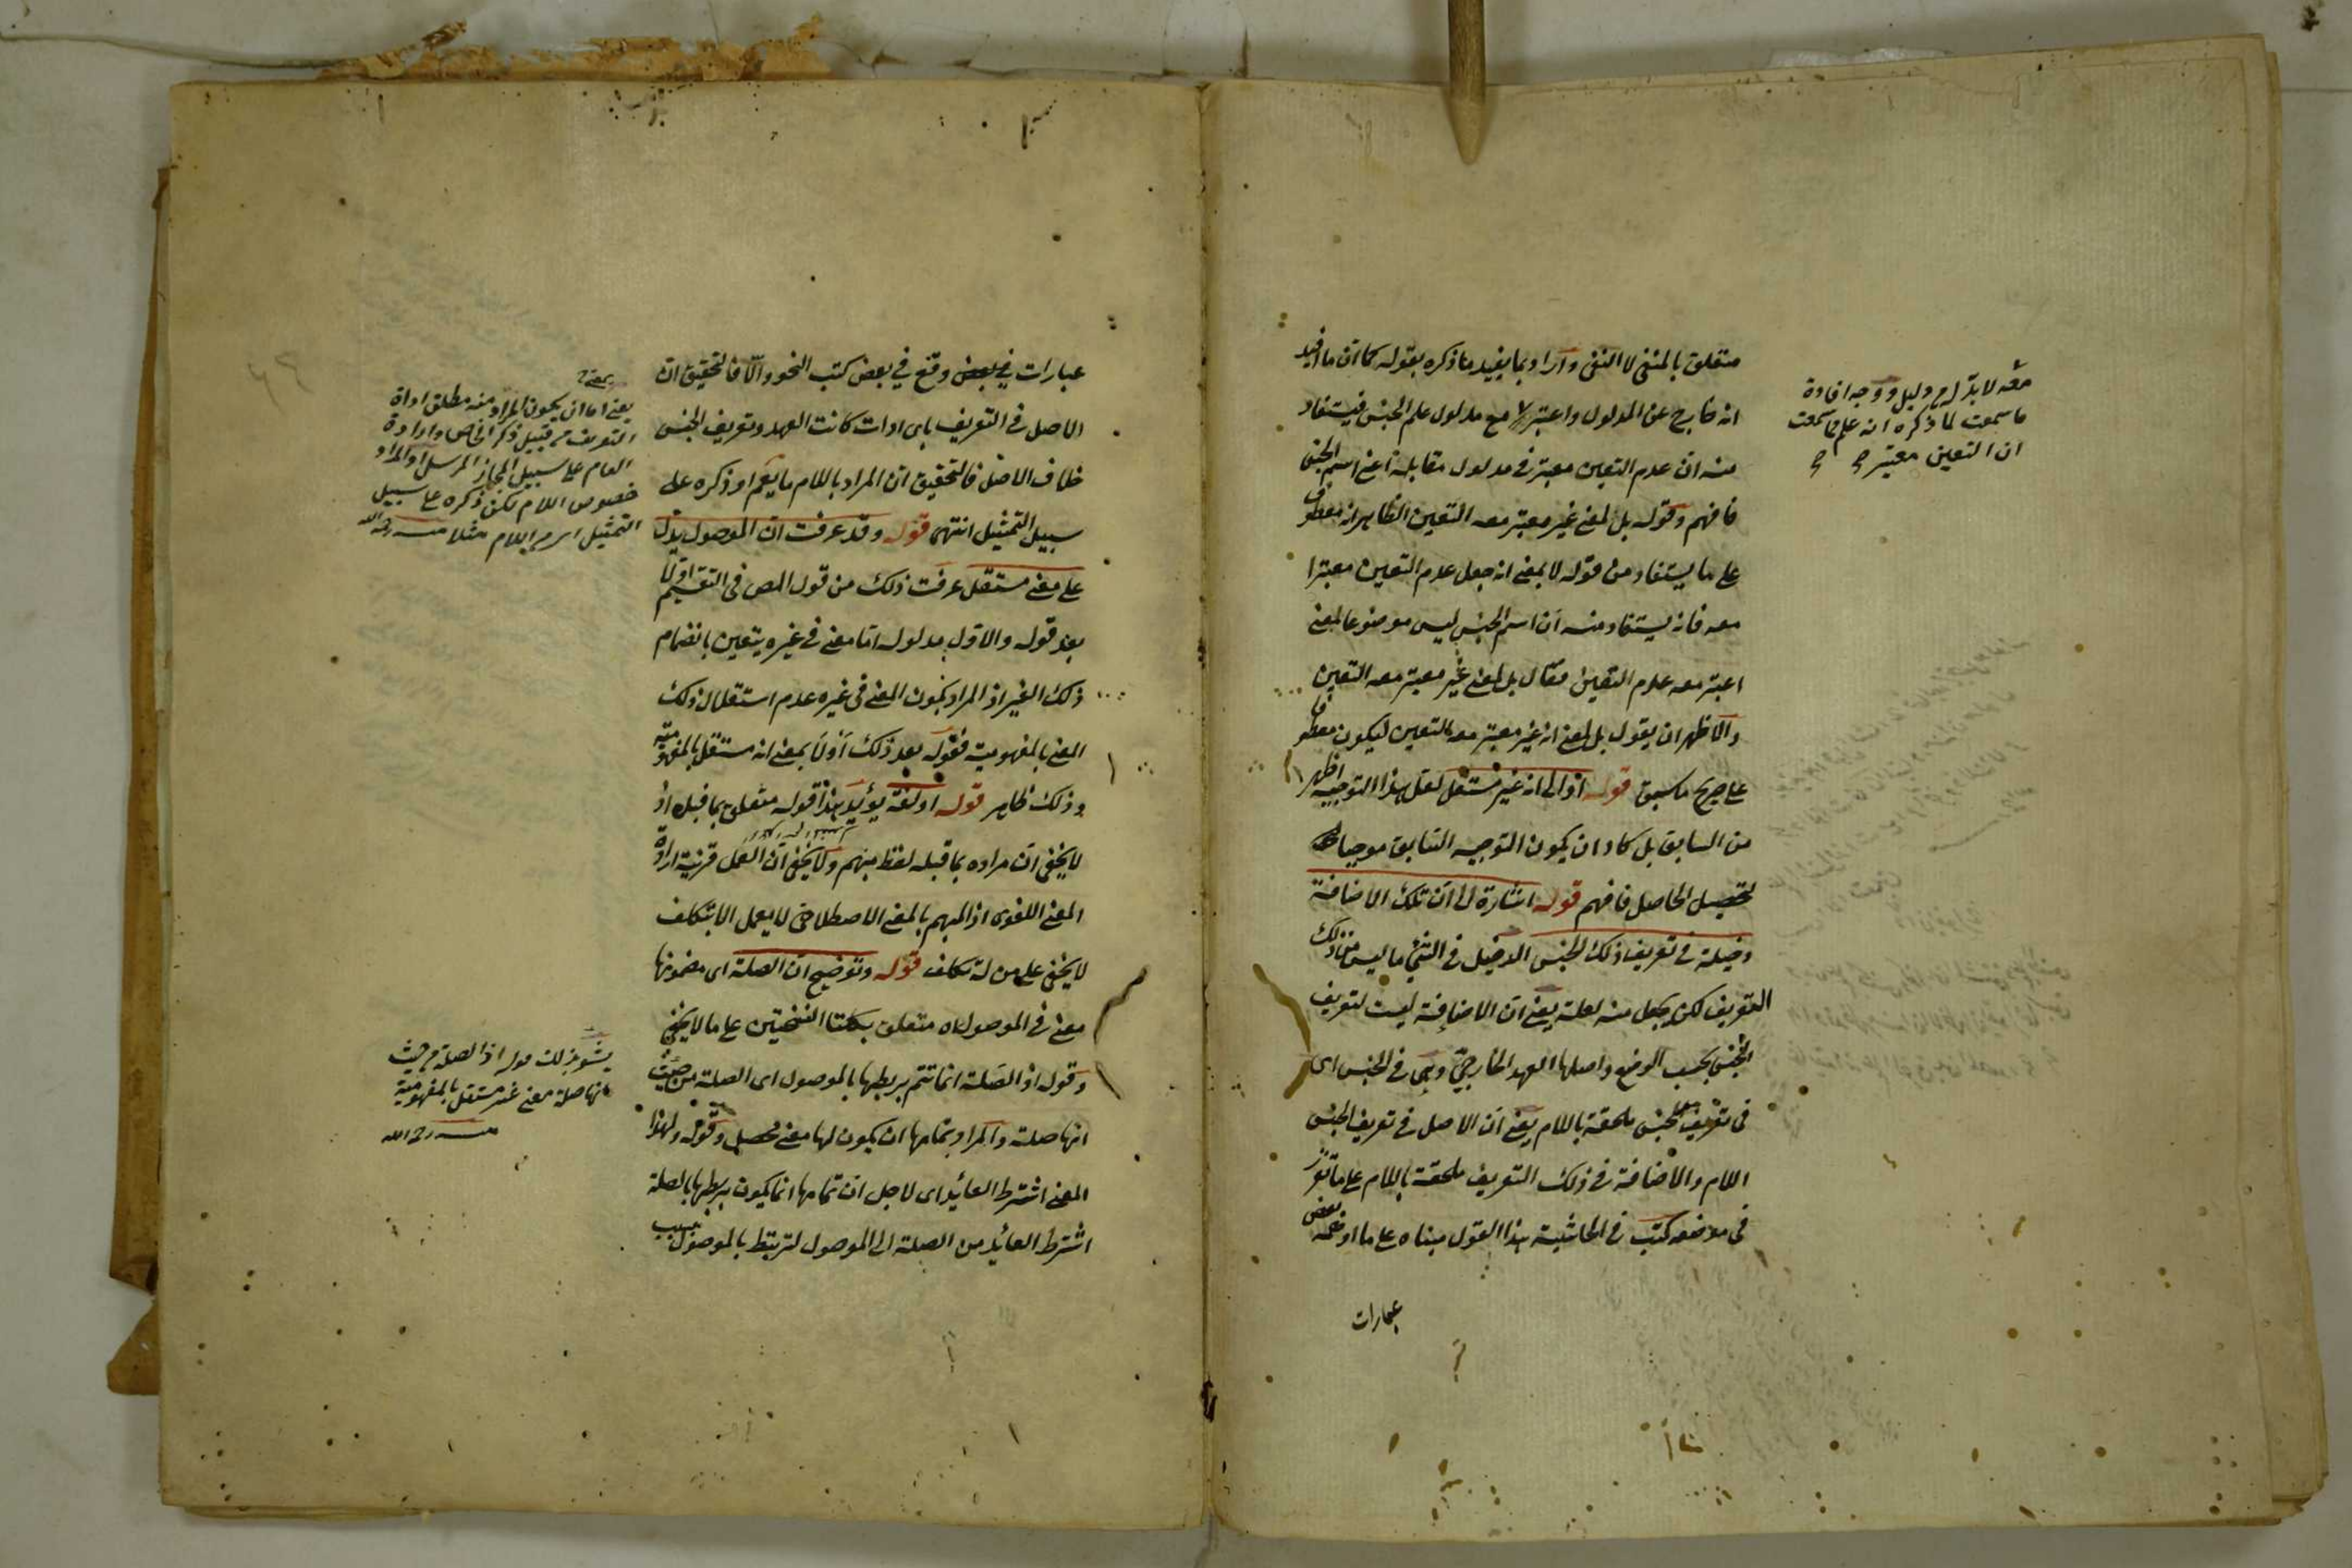 متعلق بالمنفى لا النفى واراد بما يفيد ما ذكره بقوله كما ان ما افيد
انه خارج عن المدلول واعتبر مع مدلول علم الجنس فيستفاد
منه ان عدم التعين معتبر فى مدلول مقابله اعنى اسم الجنس
فافهم وقوله بل لمعنى غير معتبر معه التعين الظاهر انه معطوف
على ما يستفاد من قوله لا بمعنى انه جعل عدم التعين معتبرا
معه فانه يستفاد منه ان اسم الجنس ليس موضوعا لمعنى
اعتبر معه عدم التعين فقال بل لمعنى غير معتبر معه التعين
والاظهر ان يقول بل لمعنى انه غير معتبر معه التعين ليكون معطوفا
على صريح ما سبق قوله اذ الى انه غير مستقل لعل هذا التوجيه اظهر
من السابق بل كاد ان يكون التوجيه السابق موجبا
لتحصيل الحاصل فافهم قوله اشارة الى ان تلك الاضافة
دخيلة فى تعريف ذلك الجنس الدخيل فى الشئ ما ليس من ذلك
التعريف لكن جعل منه لعلة يعنى ان الاضافة ليست لتعريف
الجنس بحسب الوضع واصلها العهد الخارجى وهى فى الجنس اى
فى تعريف الجنس ملحقة باللام يعنى ان الاصل فى تعريف الجنس
اللام والاضافة فى ذلك التعريف ملحقة باللام على ما تقرر
فى موضعه كتب فى الحاشية هذا القول مبناه على ما اوضحه بعض
عبارات
معه لا بد له من دليل ووجه افادة
ما سمعت لما ذكره انه علم مما سمعت
ان التعين معتبر
عبارات وقع فى بعض كتب النحو والا فالتحقيق ان
الاصل فى التعريف باى ادات كانت العهد وتعريف الجنس
خلاف الاصل فالتحقيق ان المراد باللام ما يعم او ذكره على
سبيل التمثيل انتهى قوله وقد عرفت ان الموصول يدل
على معنى مستقل عرفت ذلك من قول المص فى التقسيم اولا
بعد قوله والاول مدلوله اما معنى فى غيره يتعين بانضمام
ذلك الغير اذ المراد بكون المعنى فى غيره عدم استقلال ذلك
المعنى بالمفهومية فقوله بعد ذلك اولا بمعنى انه مستقل بالمفهومية
وذلك ظاهر قوله او لغة يؤيد هذا قوله متعلق بما قبله اذ
لا يخفى ان مراده بما قبله لفظ مبهم ولا يخفى ان العمل قرينة ارادة
المعنى اللغوى اذ المبهم بالمعنى الاصطلاحى لا يعمل الا بتكلف
لا يخفى على من له تكلف قوله وتوضيح ان الصلة اى مضمونها
معنى فى الموصول اه متعلق بكلتا النسختين على ما لا يخفى
وقوله اذ الصلة انما تتم بربطها بالموصول اى الصلة من حيث
انها صلة والمراد بتمامها ان يكون لها معنى محصل وقوله ولهذا
المعنى اشترط العائد اى لاجل ان تمامها انما يكون بربطها بالصلة
اشترط العائد من الصلة الى الموصول لتربط بالموصول بسبب
يعنى اما ان يكون المراد منه مطلق اداة
التعريف من قبيل ذكر الخاص وارادة
العام على سبيل المجاز المرسل او المراد
خصوص اللام لكن ذكره على سبيل
التمثيل اى باللام مثلا منه رحمه الله
يشعر بذلك قوله اذ الصلة من حيث
انها صلة معنى غير مستقل بالمفهومية
منه رح الله